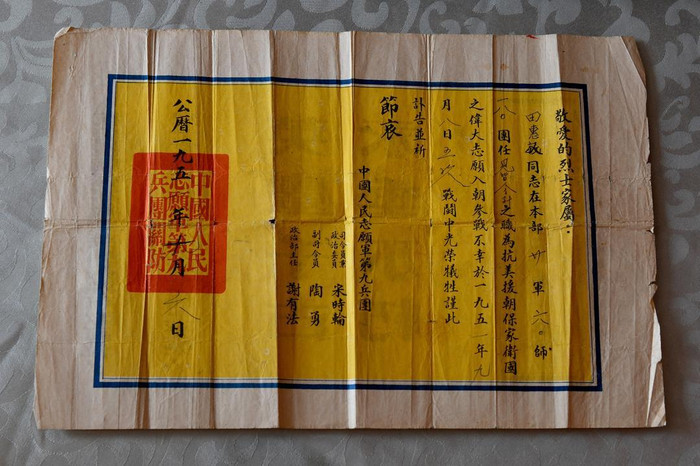 敬爱的烈士家属：
田惠敏同志在本部廿軍六〇師
一八〇團任見習会計之職為抗美援朝保家衛國
之偉大志願入朝參戰不幸於一九五一年九
月八日五次戰鬪中光荣犧牲謹此
訃告並祈
節哀
中國人民志願軍第九兵團
司令員兼政治委員 宋時輪
副司令員 陶勇
政治部主任 謝有法
公曆一九五一年 月 日
中國人民
志願軍第九
兵團聯防